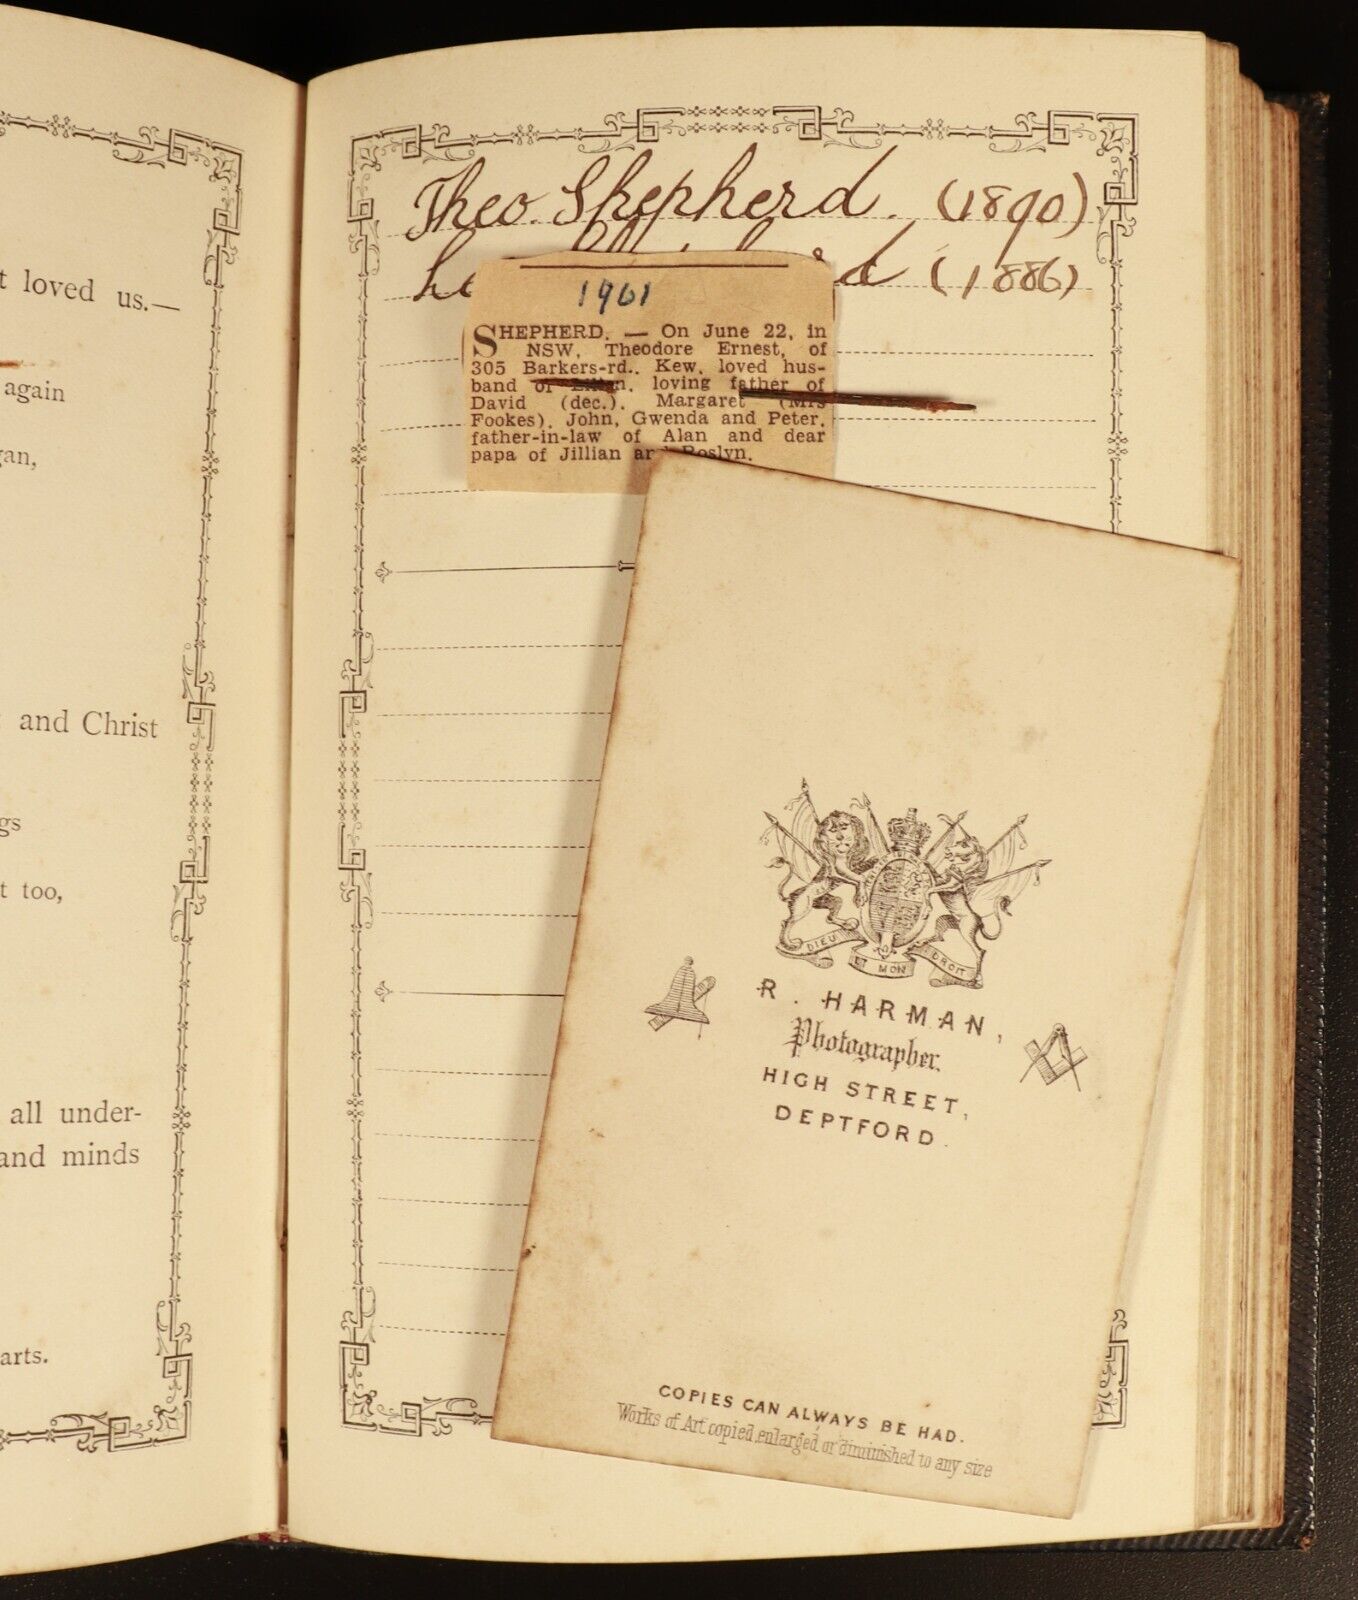 t loved us.—
again
gan,
and Christ
gs
t too,
all under-
and minds
arts.
Theo. Shepherd. (1890)
(1886)
1961
SHEPHERD. — On June 22, in
NSW, Theodore Ernest, of
305 Barkers-rd., Kew, loved hus-
band of Lilian, loving father of
David (dec.), Margaret (Mrs
Fookes), John, Gwenda and Peter,
father-in-law of Alan and dear
papa of Jillian and Roslyn.
DIEU ET MON DROIT
R. HARMAN,
Photographer.
HIGH STREET,
DEPTFORD.
COPIES CAN ALWAYS BE HAD.
Works of Art copied, enlarged or diminished to any size